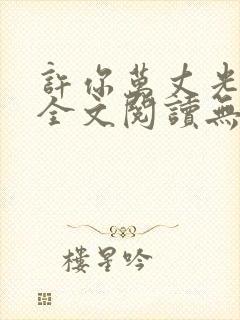 許你萬丈光
全文閱讀無
樓星吟